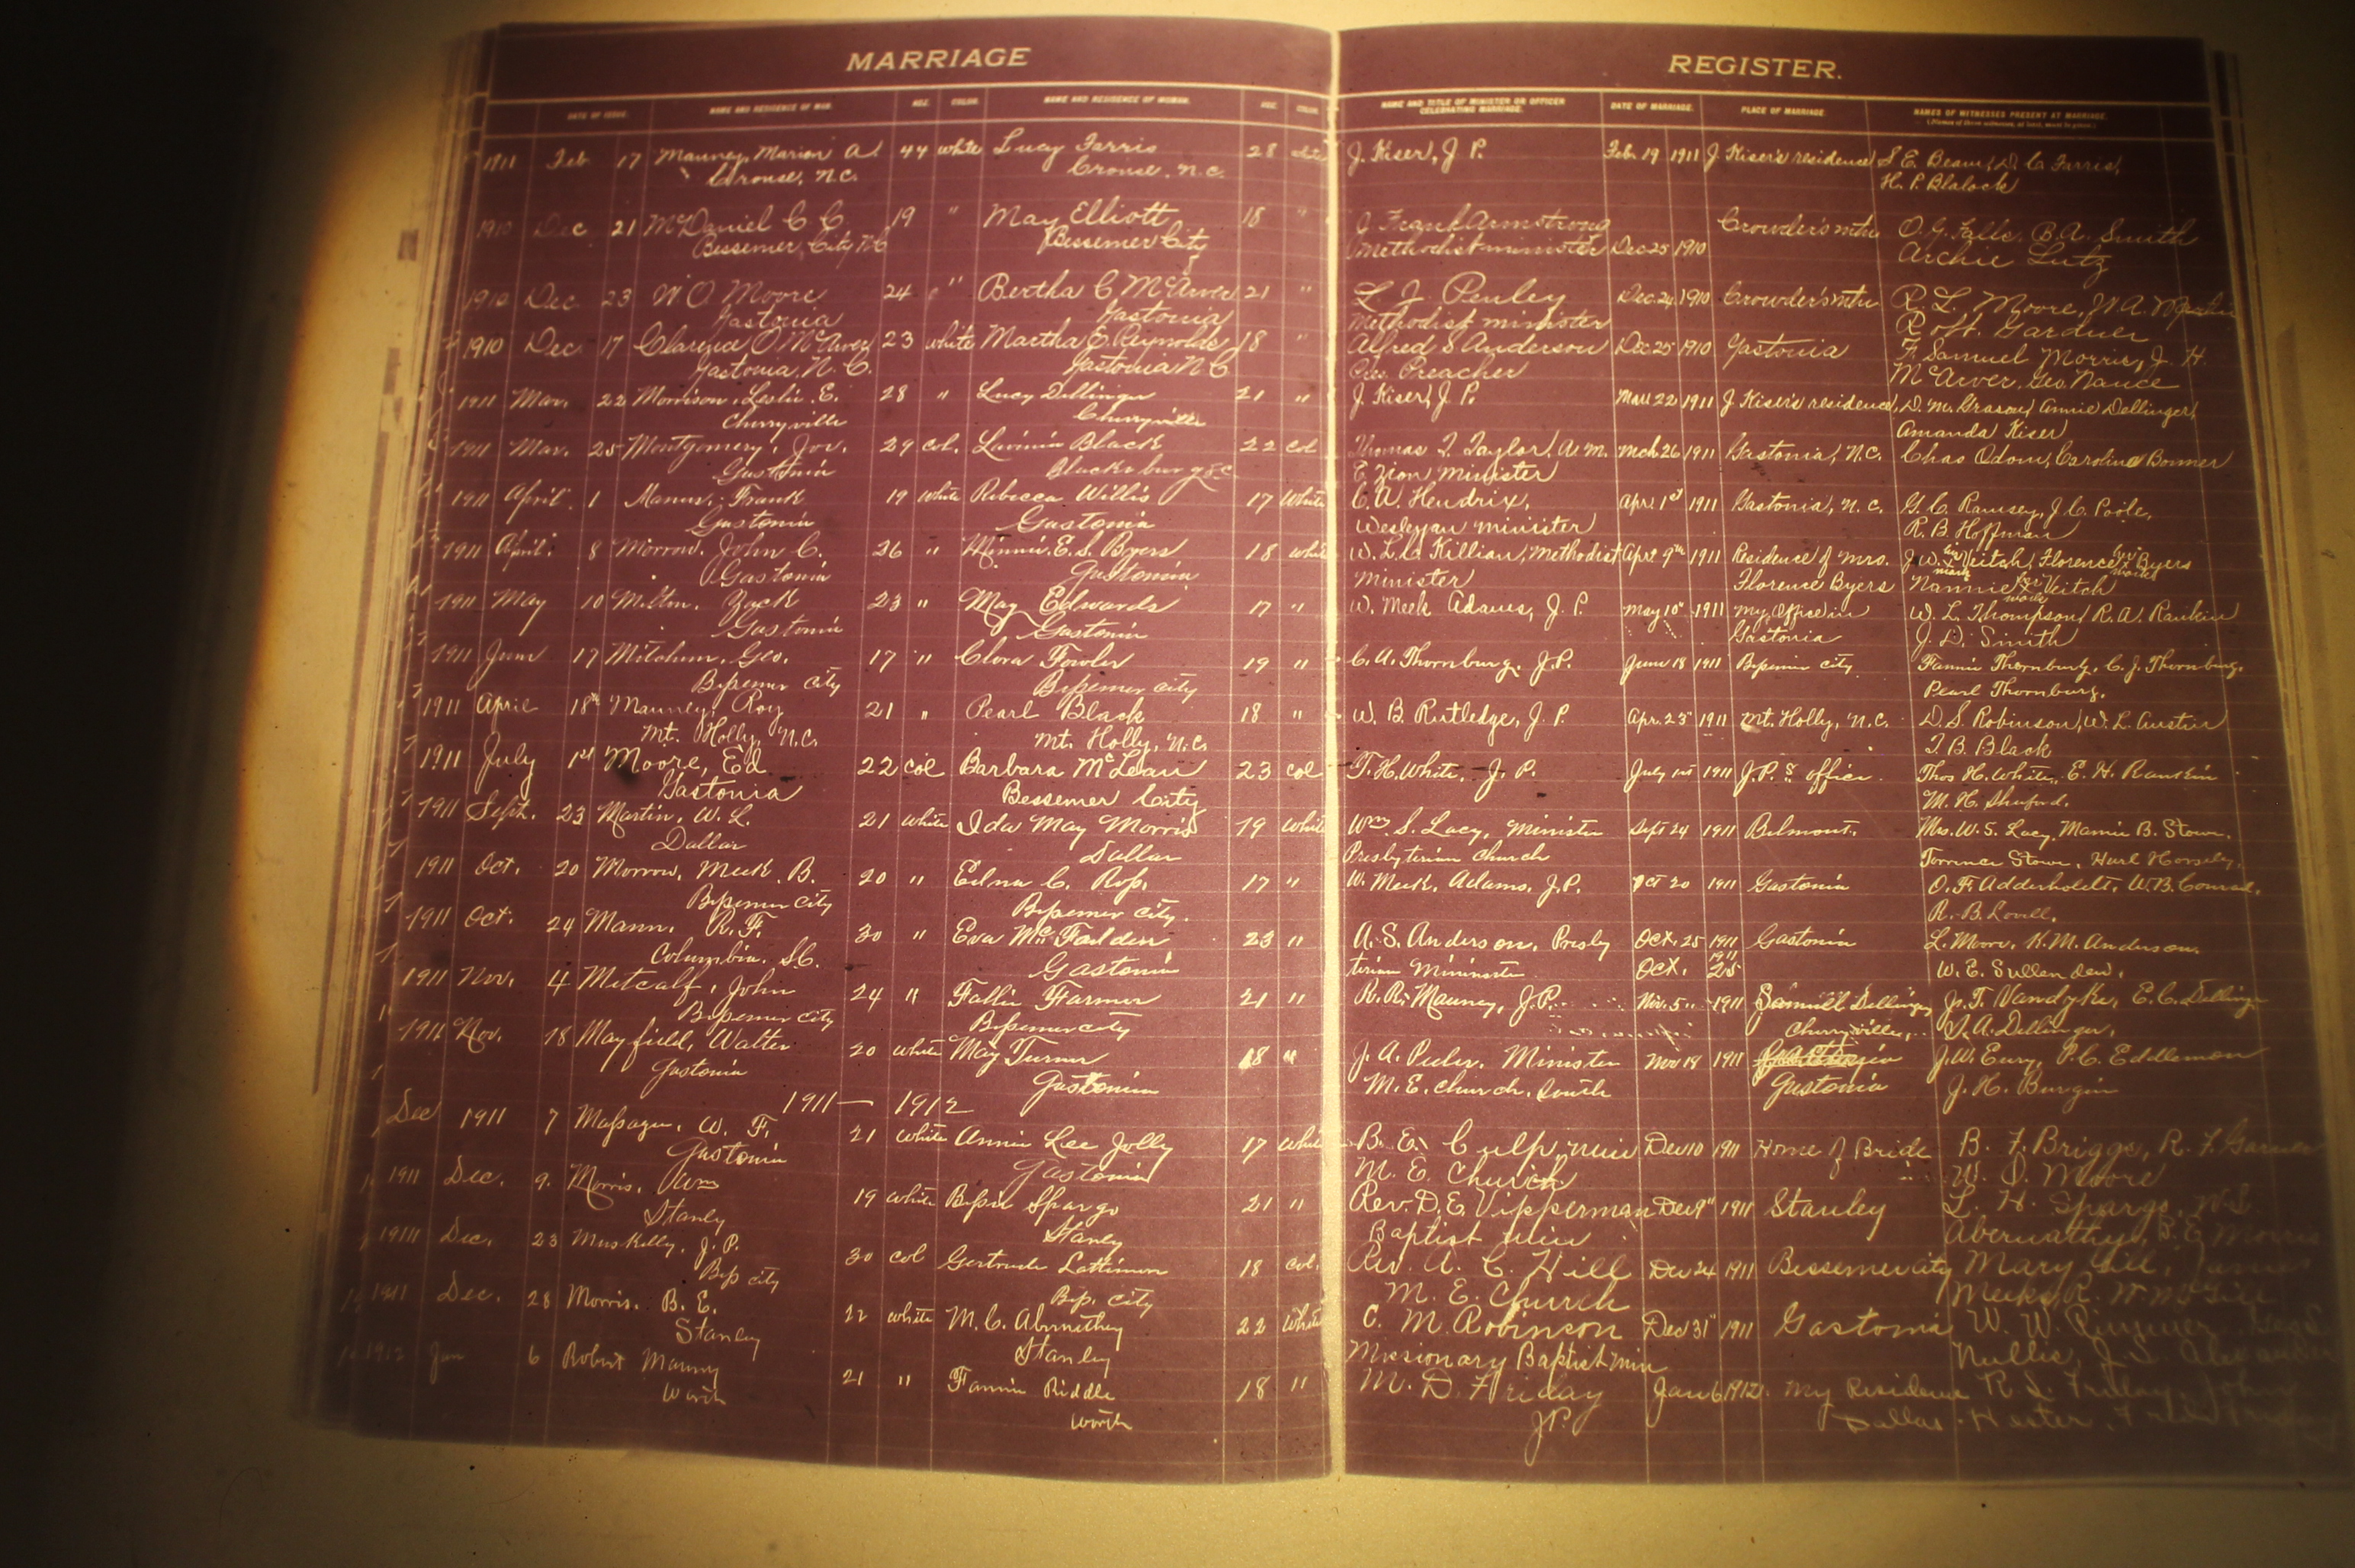 MARRIAGE
REGISTER.
DATE OF ISSUE. NAME AND RESIDENCE OF MAN. AGE. COLOR. NAME AND RESIDENCE OF WOMAN. AGE. COLOR. NAME AND TITLE OF MINISTER OR OFFICER CELEBRATING MARRIAGE. DATE OF MARRIAGE. PLACE OF MARRIAGE. NAMES OF WITNESSES PRESENT AT MARRIAGE.
(Names of three witnesses, at least, must be given.)
1911 Feb 17 Mauney, Marion A. 44 white Lucy Farris 28 J. Kiser, J P. Feb. 19 1911 J. Kiser's residence S. E. Beam, D. C. Farris,
Crouse, N.C. Crouse, N.C. H. P. Blalock
1910 Dec 21 McDaniel C C. 19 " May Elliott 18 " J. Frank Armstrong Crowders mtn O. G. Falls. B. A. Smith
Bessemer City N C Bessemer City Methodist minister Dec 25 1910 Archie Lutz
1910 Dec 23 W O. Moore 24 " Bertha C McArver 21 " L J. Penley Dec 24 1910 Crowder's mtn R. L. Moore, W. A.
Gastonia Gastonia Methodist minister Robt. Gardner
1910 Dec 17 Clarence O. McArver 23 white Martha E. Reynolds 18 " Alfred S Anderson Dec 25 1910 Gastonia F. Samuel Morris, J. H
Gastonia, N. C. Gastonia N C Pres. Preacher McArver, Geo. Nance
1911 Mar. 22 Morrison, Leslie E. 28 " Lucy Dellinger 21 " J. Kiser, J P. Mar 22 1911 J Kiser's residence, D. M. Annie Dellinger,
Cherryville Cherryville Amanda Kiser
1911 Mar. 25 Montgomery, Jov. 29 col. Lavinia Black 22 col Thomas T. Taylor, A. M. Mch 26 1911 Gastonia, N.C. Chas Odom, Caroline Bonner
Gastonia Blacksburg S C E Zion Minister
1911 April 1 Manus, Frank 19 white Rebecca Willis 17 White C. A. Hendrix, Apr 1st 1911 Gastonia, N. C. G. C. Ramsey, J. C. Poole,
Gastonia Gastonia Wesleyan minister R. B. Hoffman
1911 April 8 Morrow, John C. 26 " Minnie E. S. Byers 18 white W. L. C. Killian, Methodist Apr 9th 1911 Residence of Mrs. J. W. his x mark Veitch, Florence her x mark Byers
Gastonia Gastonia minister Florence Byers Nannie her x mark Veitch
1911 May 10 Milton, Zack 23 " May Edwards 17 " W. Meek Adams, J. P. May 10" 1911 my office in W. L. Thompson, R. A. Rankin
Gastonia Gastonia Gastonia J. D. Smith
1911 June 17 Mitchum, Geo. 17 " Clora Fowler 19 " C. A. Thornburg, J.P. June 18 1911 Bessemer city Fannie Thornburg, C. J. Thornburg.
Bessemer city Bessemer city Pearl Thornburg.
1911 April 18th Mauney, Roy 21 " Pearl Black 18 " W. B. Rutledge, J. P. Apr. 23" 1911 Mt. Holly, N.C. D. S. Robinson, W. L. Austin
Mt. Holly, N.C. Mt. Holly, N.C. T. B. Black
1911 July 1st Moore, Ed. 22 col Barbara McLean 23 col T. H. White, J. P. July 1st 1911 J.P.'s office. Thos H. White, E. H. Rankin
Gastonia Bessemer City M. H. Shuford.
1911 Sept. 23 Martin, W. L. 21 white Ida May Morris 19 White Wm S. Lacy, Minister Sept 24 1911 Belmont. Mrs. W. S. Lacy, Mamie B. Stowe.
Dallas Dallas Presbyterian Church Torrence Stowe, Hurl Horseley.
1911 Oct. 20 Morrow, Meek. B. 20 " Edna C. Ross. 17 " W. Meek. Adams, J.P. Oct 20 1911 Gastonia O. F. Adderholdt, W. B. Conrad.
Bessemer city Bessemer city. R. B. Lovell.
1911 Oct. 24 Mann, R. F. 30 " Eva McFadden 23 " A. S. Anderson, Presby Oct. 25 1911 Gastonia L. Moore, K. M. Anderson.
Columbia, S.C. Gastonia terian Mininster Oct. 25 1911 W. E. Sullenden.
1911 Nov. 4 Metcalf, John 24 " Fallie Farmer 21 " R. R. Mauney, J.P. Nov. 5" 1911 Samuel Dellinger J. T. Vandyke, E. C. Dellinge
Bessemer city Bessemer city Cherryville, S. A. Dellinger.
1911 Nov. 18 Mayfield, Walter 20 white May Turner 18 " J. A. Peeler. Minister Nov 18 1911 J. W. Eury, P. C. Eddlemon
Gastonia Gastonia M. E. Church, South Gastonia J. H. Burgin
1911 — 1912
Dec 1911 7 Massagee, W. F. 21 white Annie Lee Jolly 17 White B. E. Culp, min Dec 10 1911 Home of Bride B. F. Briggs, R. F. Garner
Gastonia Gastonia M. E. Church W. O. Moore
1911 Dec. 9. Morris, Wm 19 white Bessie Spargo 21 " Rev. D. E. Vipperman Dec 9" 1911 Stanley L. H. Spargo, W. S.
Stanly Stanly Baptist Min Abernathy, B. E Morris
1911 Dec. 23 Muskelly, J. P. 30 col Gertrude Lattimore 18 col. Rev. A. C. Hill Dec 24 1911 Bessemer city Mary Gill, James
Bess city Bess. city M. E. Church Meeks, R. W McGill
1911 Dec. 28 Morris, B. E. 22 white M. C. Abernathy 22 White C. M. Robinson Dec 31" 1911 Gastonia W. W. Rimmer,
Stanley Stanley Missionary Baptist Min Nullis, J. S. Alexander
1912 Jan 6 Robert Mauny 21 " Fannie Riddle 18 " M. D. Friday Jan 6 1912. my Residence R. S. Friday, John
Worth Worth J P. Dallas. Hester,